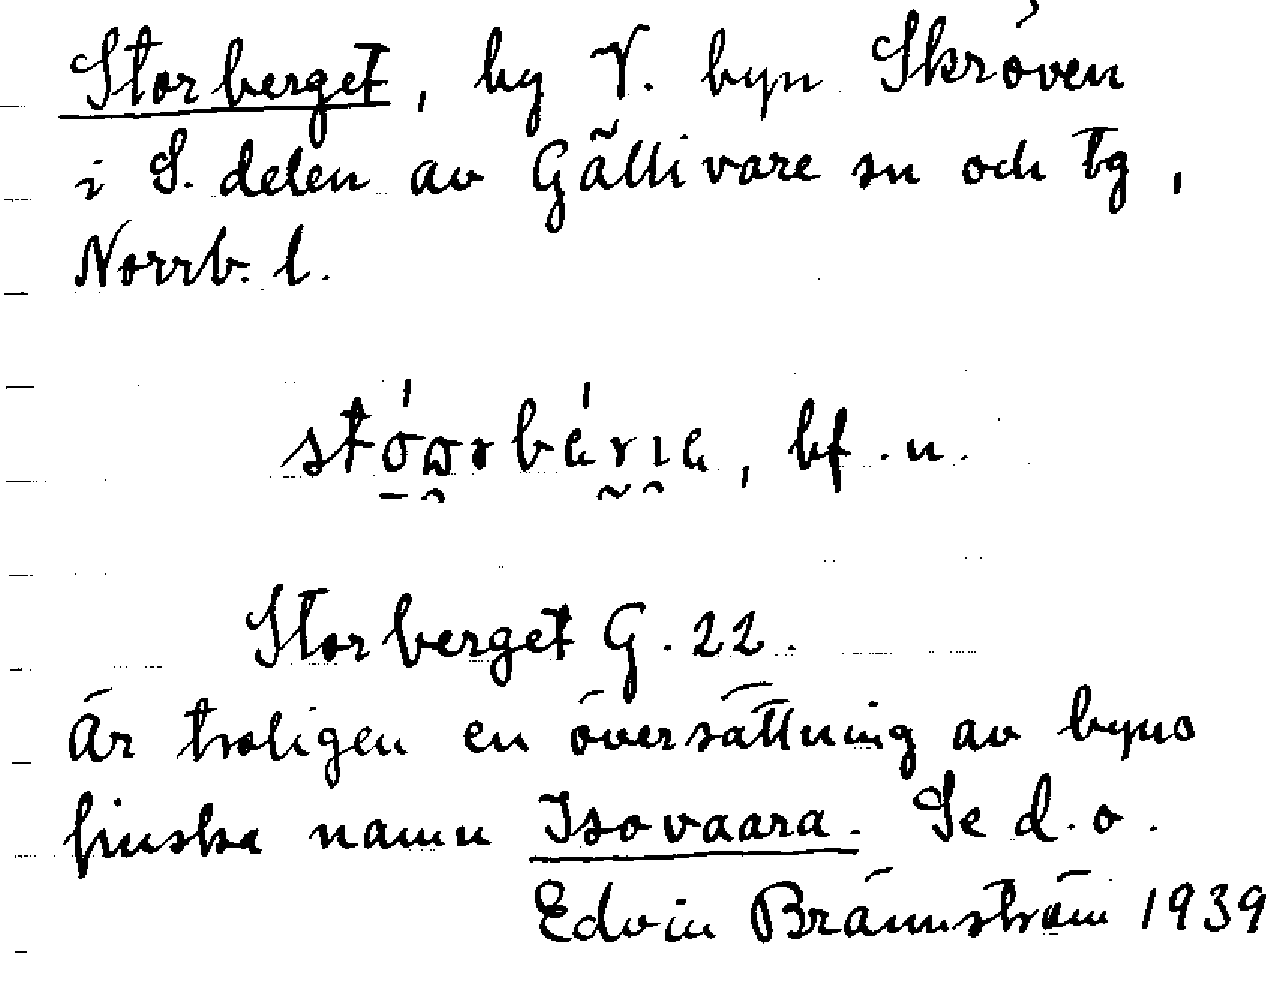 Storberget, by V. byn Skröven
i S. delen av Gällivare sn och tg,
Norrb. l.
bf. n.
Storberget G. 22.
Är troligen en översättning av byns
finska namn Isovaara. Se d. o.
Edvin Brännström 1939